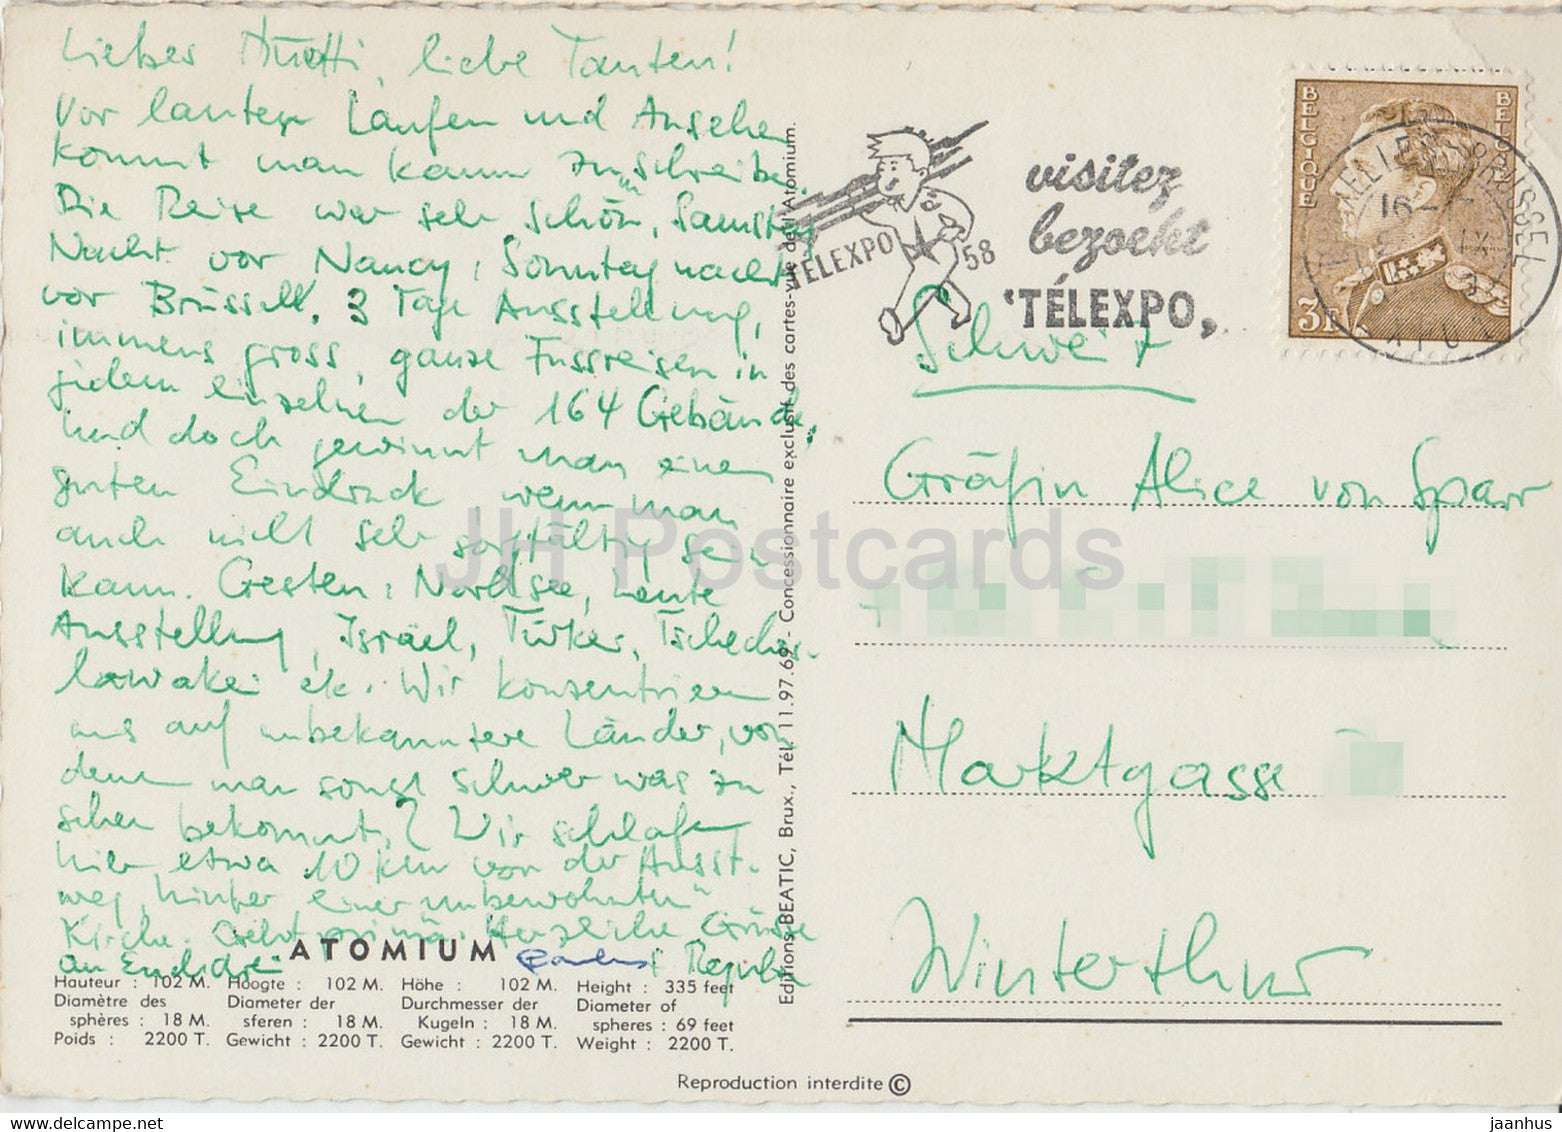 Lieber Muetti, liebe Tanten!
Vor lauter Laufen und Ansehen
kommt man kaum zu schreiben.
Die Reise war sehr schön, Samstag
Nacht vor Nancy, Sonntag nacht
vor Brüssell. 3 Tage Ausstellung,
immens gross, ganze Fussreisen in
jedem einzelnen der 164 Gebäude.
Und doch gewinnt man einen
guten Eindruck, wenn man
auch nicht sehr sorgfältig sein
kann. Gestern: Nordsee, heute
Ausstellung, Israel, Türkei, Tschechos-
lowakei etc. Wir konzentrieren
uns auf unbekanntere Länder, von
denen man sonst schwer was zu
sehen bekommt. Wir schlafen
hier etwa 10 km von der Ausst.
weg, hinter einer "unbewohnten"
Kirche. Geht prima. Herzliche Grüsse
an Euch drei
& Regula
ATOMIUM
Hauteur : 102 M. Hoogte : 102 M. Höhe : 102 M. Height : 335 feet
Diamètre des Diameter der Durchmesser der Diameter of
sphères : 18 M. sferen : 18 M. Kugeln : 18 M. spheres : 69 feet
Poids : 2200 T. Gewicht : 2200 T. Gewicht : 2200 T. Weight : 2200 T.
Reproduction interdite ©
Editions BEATIC, Brux., Tél. 11.97.69 - Concessionnaire exclusif des cartes-vue de l'Atomium.
TÉLEXPO 58
visitez
bezoekt
'TÉLEXPO,
BELGIQUE
BELGIE
3F
BRUSSEL
16
IX
Schweiz
Gräfin Alice von Sparr
Marktgasse
Winterthur
JH Postcards
www.delcampe.net
jaanhus